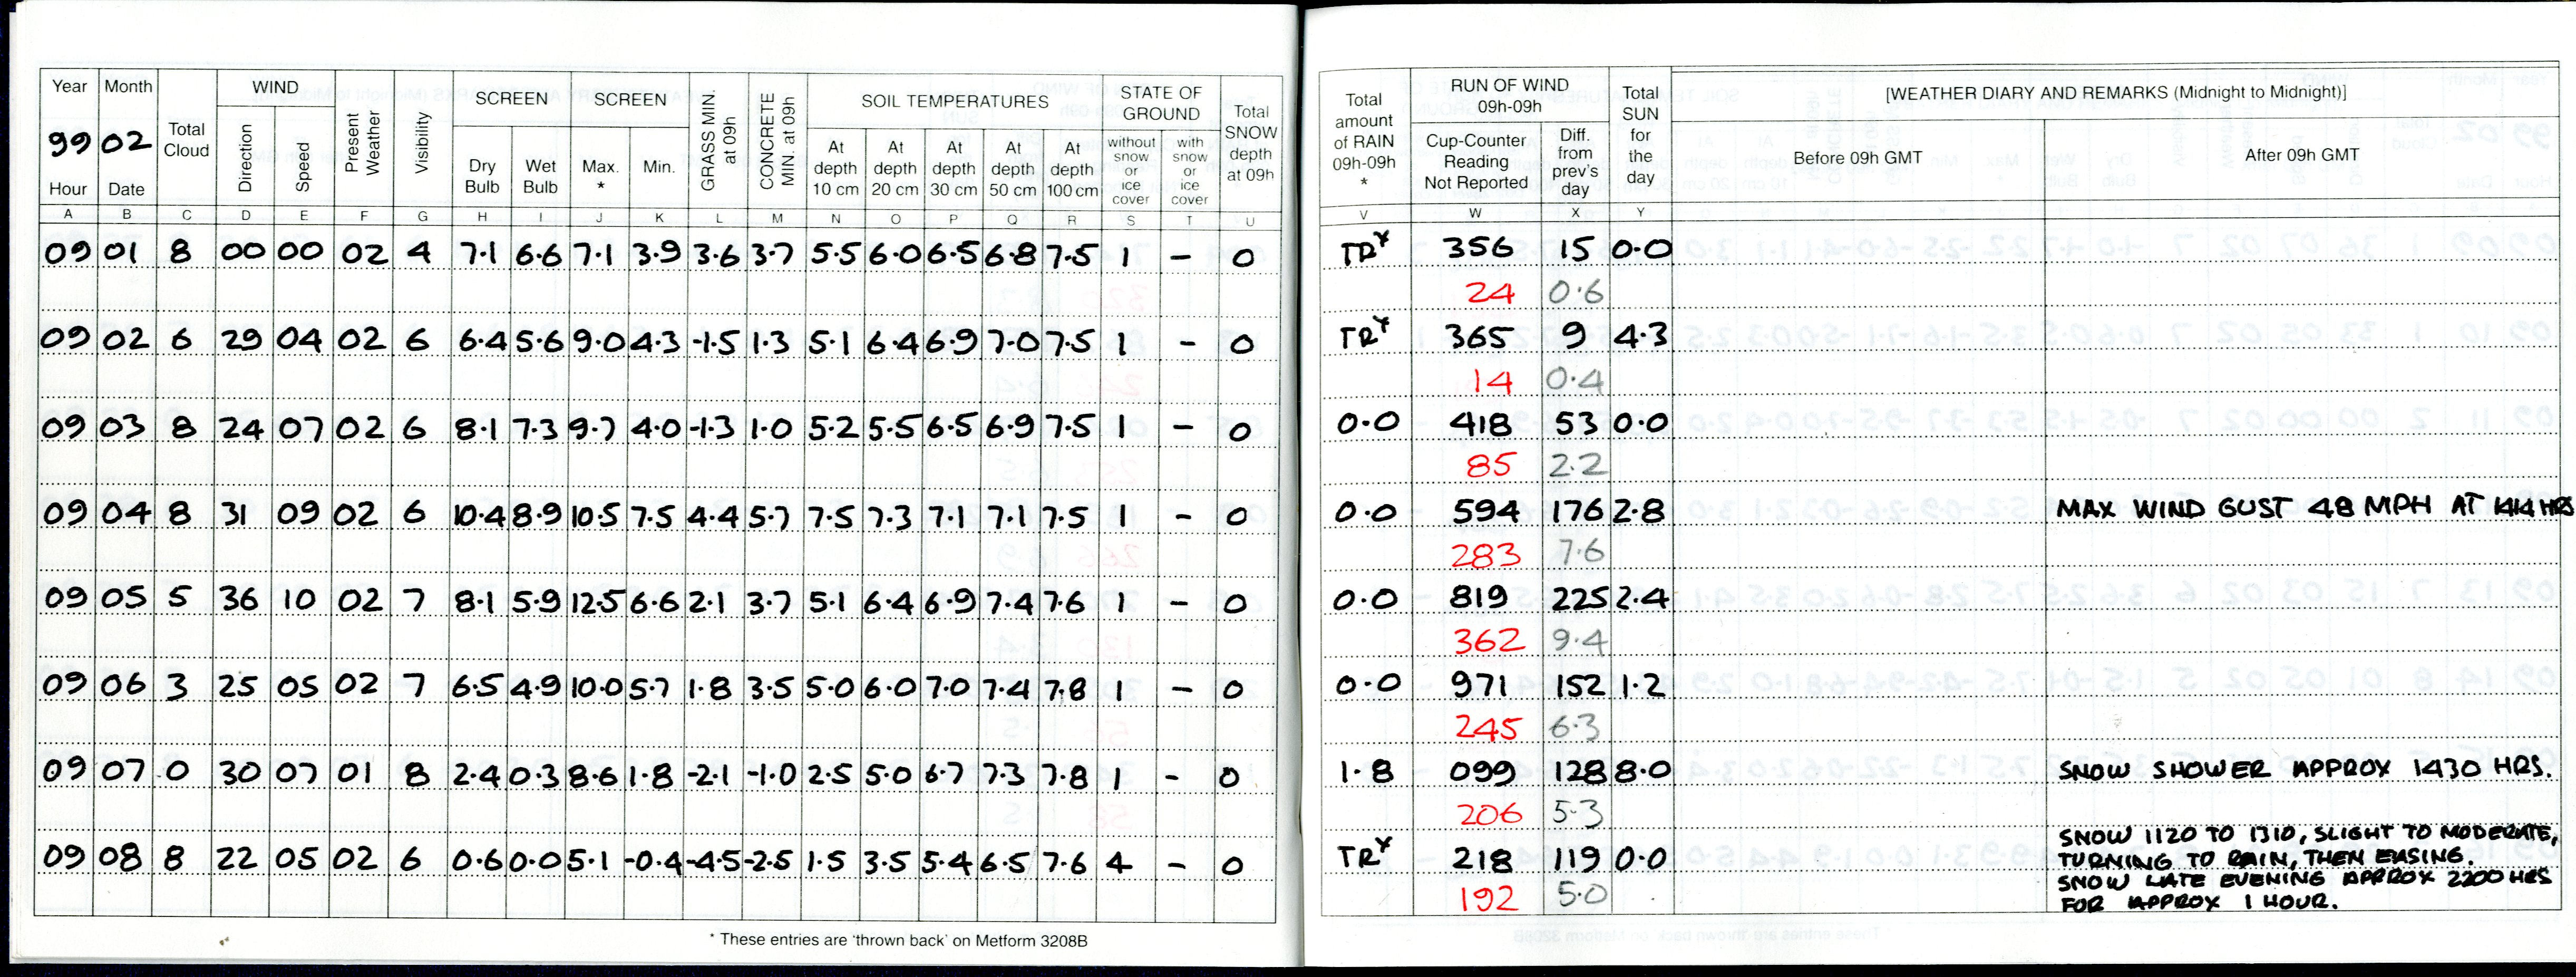 Year Month Total Cloud WIND Present Weather Visibility SCREEN SCREEN GRASS MIN. at 09h CONCRETE MIN. at 09h SOIL TEMPERATURES STATE OF GROUND Total SNOW depth at 09h
99 02 Direction Speed Dry Bulb Wet Bulb Max. * Min. At depth 10 cm At depth 20 cm At depth 30 cm At depth 50 cm At depth 100 cm without snow or ice cover with snow or ice cover
Hour Date
A B C D E F G H I J K L M N O P Q R S T U
09 01 8 00 00 02 4 7.1 6.6 7.1 3.9 3.6 3.7 5.5 6.0 6.5 6.8 7.5 1 - 0
09 02 6 29 04 02 6 6.4 5.6 9.0 4.3 -1.5 1.3 5.1 6.4 6.9 7.0 7.5 1 - 0
09 03 8 24 07 02 6 8.1 7.3 9.7 4.0 -1.3 1.0 5.2 5.5 6.5 6.9 7.5 1 - 0
09 04 8 31 09 02 6 10.4 8.9 10.5 7.5 4.4 5.7 7.5 7.3 7.1 7.1 7.5 1 - 0
09 05 5 36 10 02 7 8.1 5.9 12.5 6.6 2.1 3.7 5.1 6.4 6.9 7.4 7.6 1 - 0
09 06 3 25 05 02 7 6.5 4.9 10.0 5.7 1.8 3.5 5.0 6.0 7.0 7.4 7.8 1 - 0
09 07 0 30 07 01 8 2.4 0.3 8.6 1.8 -2.1 -1.0 2.5 5.0 6.7 7.3 7.8 1 - 0
09 08 8 22 05 02 6 0.6 0.0 5.1 -0.4 -4.5 -2.5 1.5 3.5 5.4 6.5 7.6 4 - 0
* These entries are 'thrown back' on Metform 3208B
Total amount of RAIN 09h-09h * RUN OF WIND 09h-09h Total SUN for the day [WEATHER DIARY AND REMARKS (Midnight to Midnight)]
Cup-Counter Reading Not Reported Diff. from prev's day Before 09h GMT After 09h GMT
V W X Y
TR 356 15 0.0
24 0.6
TR 365 9 4.3
14 0.4
0.0 418 53 0.0
85 2.2
0.0 594 176 2.8 MAX WIND GUST 48 MPH AT 1414 HRS
283 7.6
0.0 819 225 2.4
362 9.4
0.0 971 152 1.2
245 6.3
1.8 099 128 8.0 SNOW SHOWER APPROX 1430 HRS.
206 5.3
SNOW 1120 TO 1310, SLIGHT TO MODERATE,
TR 218 119 0.0 TURNING TO RAIN, THEN EASING.
SNOW LATE EVENING APPROX 2200 HRS
192 5.0 FOR APPROX 1 HOUR.